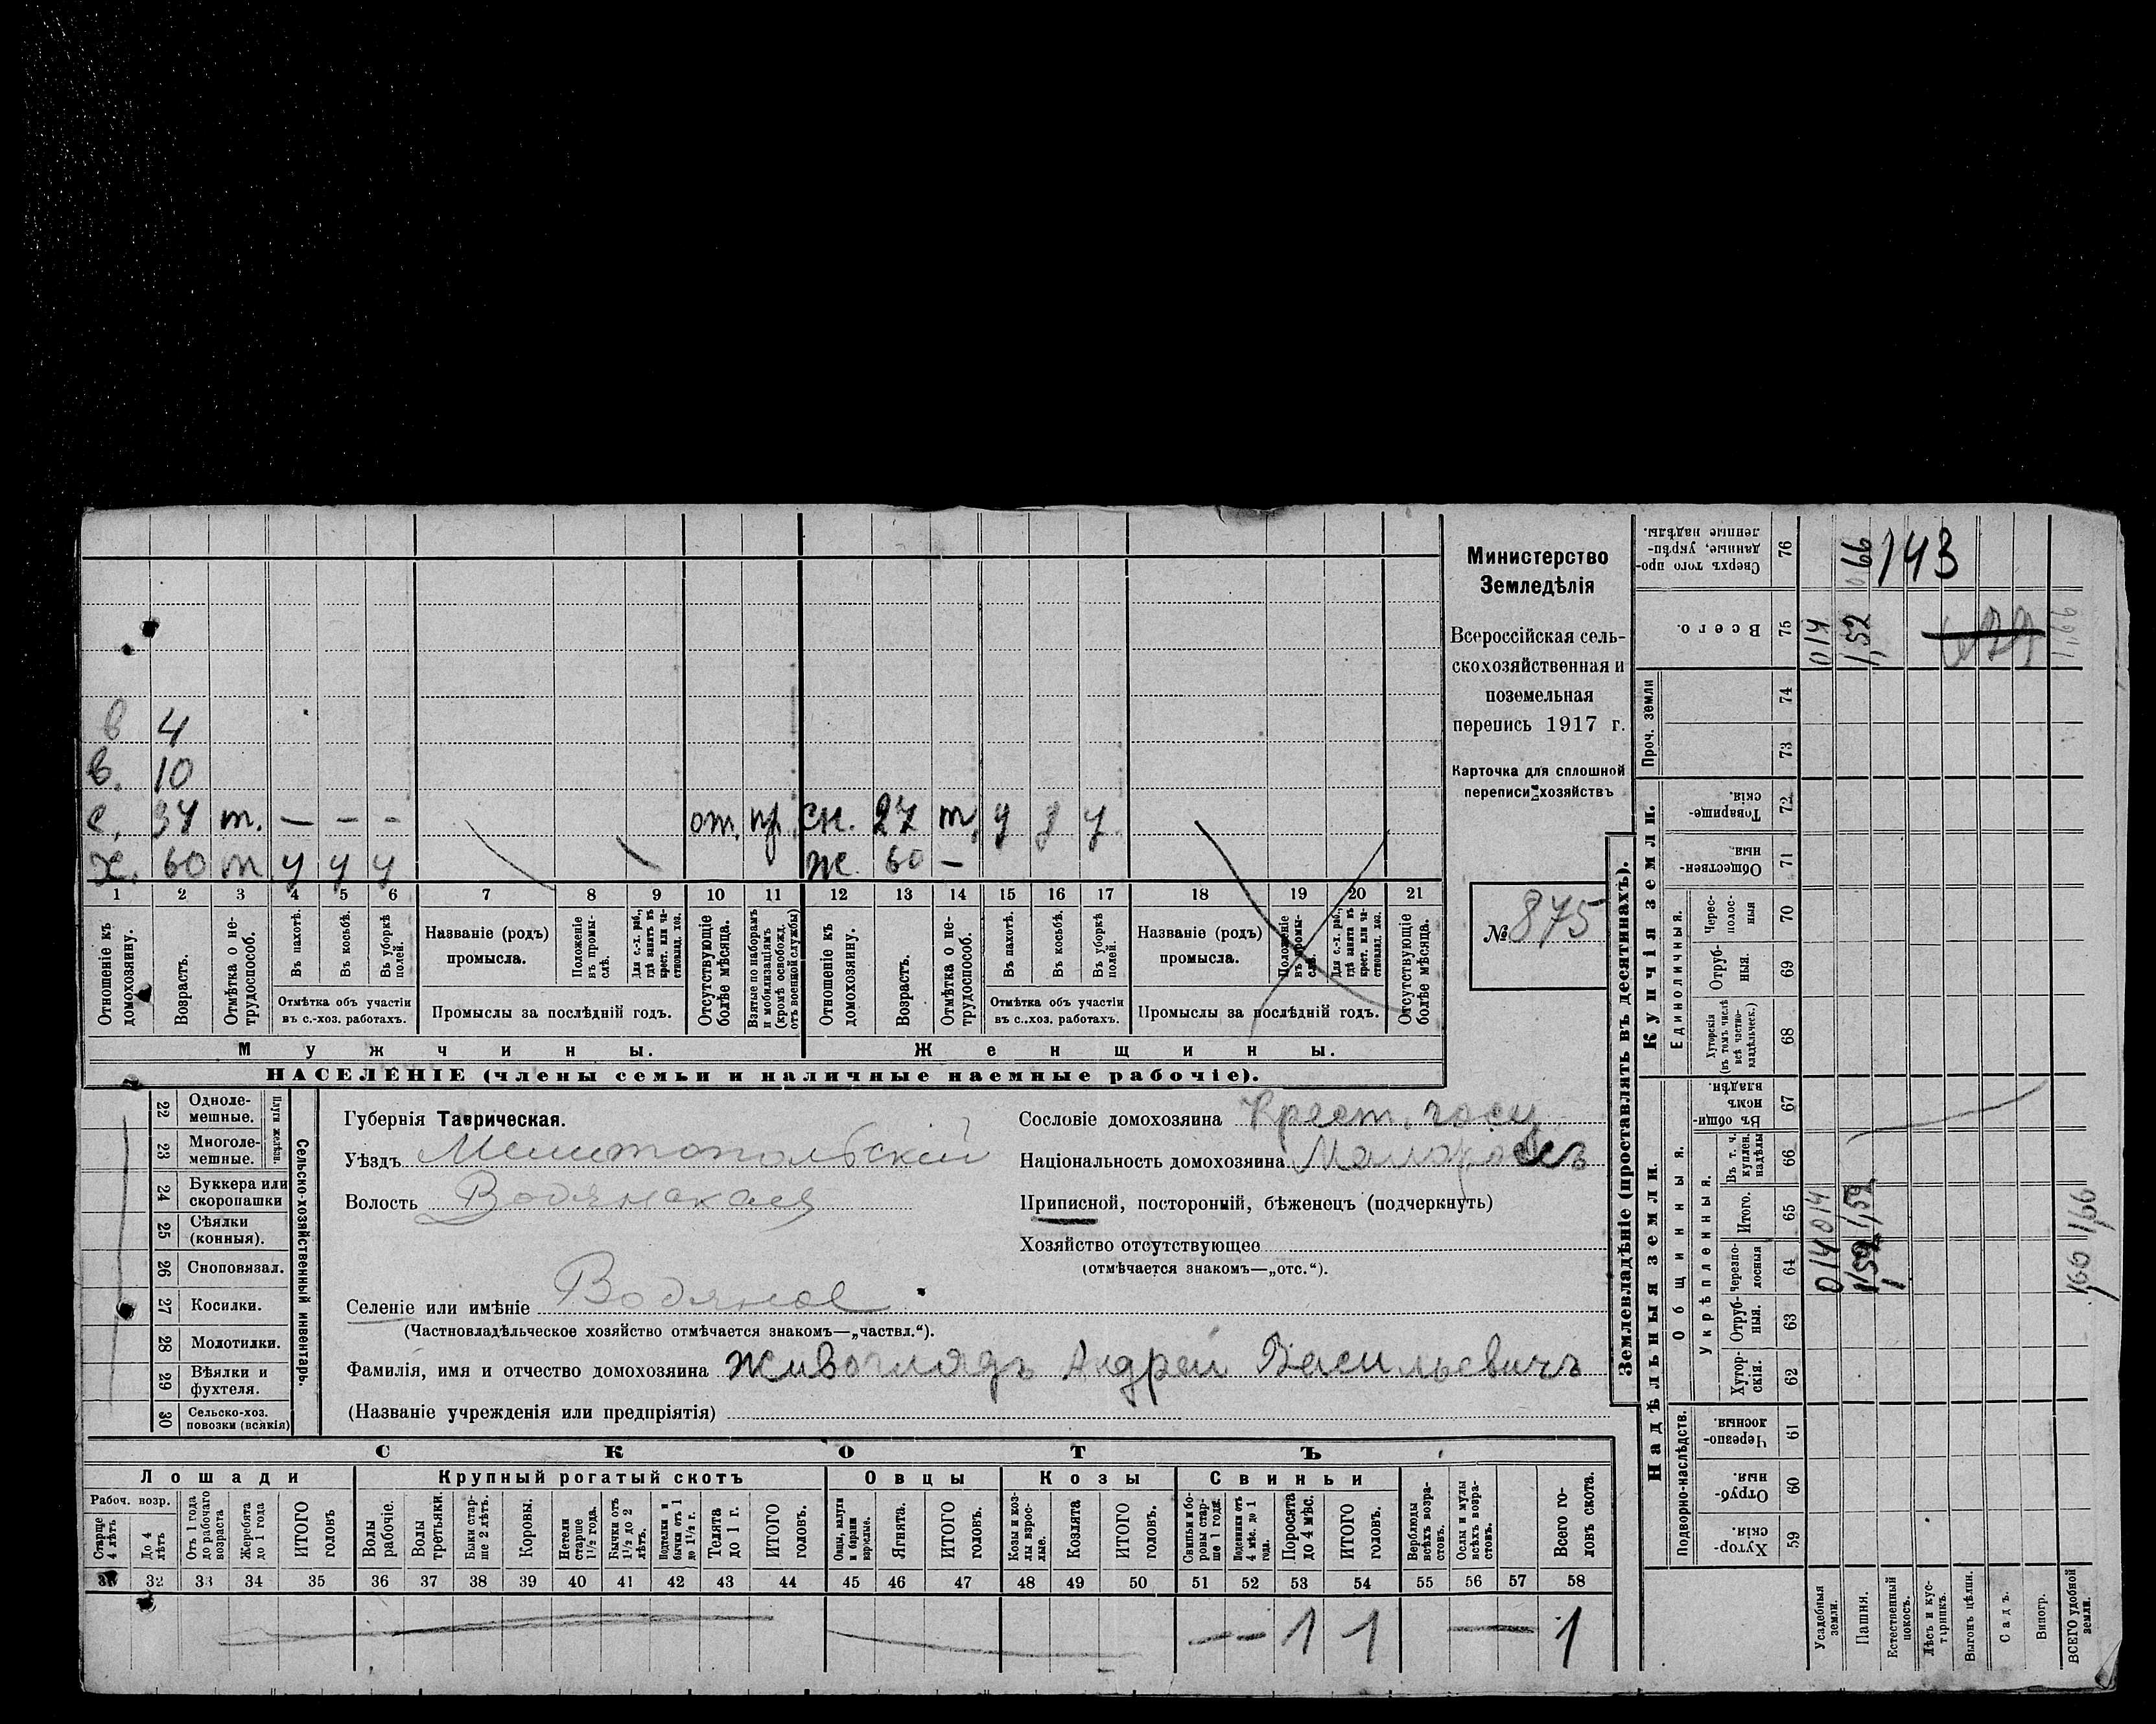 в 4
в. 10
с. 37 т. — — — от. пр. сн. 27 т, у у у
х. 60 т у у у ж. 60 —
1 2 3 4 5 6 7 8 9 10 11 12 13 14 15 16 17 18 19 20 21
Отношеніе къ домохозяину.
Возрастъ.
Отмѣтка о не-трудоспособ.
Въ пахотѣ.
Въ косьбѣ.
Въ уборкѣ полей.
Отмѣтка объ участіи
въ с.-хоз. работахъ.
Названіе (родъ)
промысла.
Положеніе въ промы-слѣ.
Для с.-х. раб., гдѣ занятъ въ крест. или ча-стновлад. хоз.
Промыслы за послѣдній годъ.
Отсутствующіе болѣе мѣсяца.
Взятые по наборамъ и мобилизаціямъ (кромѣ освобожд. отъ военной службы)
Отношеніе къ домохозяину.
Возрастъ.
Отмѣтка о не-трудоспособ.
Въ пахотѣ.
Въ косьбѣ.
Въ уборкѣ полей.
Отмѣтка объ участіи
въ с.-хоз. работахъ.
Названіе (родъ)
промысла.
Положеніе въ промы-слѣ.
Для с.-х. раб., гдѣ занята въ крест. или ча-стновлад. хоз.
Промыслы за послѣдній годъ.
Отсутствующіе болѣе мѣсяца.
Мужчины.
Женщины.
НАСЕЛЕНІЕ (члены семьи и наличные наемные рабочіе).
Министерство
Земледѣлія
Всероссійская сель-
скохозяйственная и
поземельная
перепись 1917 г.
Карточка для сплошной
переписи хозяйствъ
№ 875
22 Одноле-мешные.
23 Многоле-мешные.
Плуги желѣзн.
24 Буккера или скоропашки
25 Сѣялки (конныя).
26 Сноповязал.
27 Косилки.
28 Молотилки.
29 Вѣялки и фухтеля.
30 Сельско-хоз. повозки (всякія)
Сельско-хозяйственный инвентарь.
Губернія Таврическая.
Уѣздъ Мелитопольскій
Волость Водянская
Селеніе или имѣніе Водяное
(Частновладѣльческое хозяйство отмѣчается знакомъ—„частвл.“).
Фамилія, имя и отчество домохозяина Живоглядъ Андрей Васильевичъ
(Названіе учрежденія или предпріятія)
Сословіе домохозяина Крест.
Національность домохозяина Малороссъ
Приписной, посторонній, бѣженецъ (подчеркнуть)
Хозяйство отсутствующее
(отмѣчается знакомъ—„отс.“).
СКОТЪ
Лошади
Рабоч. возр.
Старше 4 лѣтъ
До 4 лѣтъ
Отъ 1 года до рабочаго возраста
Жеребята до 1 года
ИТОГО головъ
Крупный рогатый скотъ
Волы рабочіе.
Волы третьяки.
Быки стар-ше 2 лѣтъ.
Коровы.
Нетели старше 1½ года.
Бычки отъ 1½ до 2 лѣтъ.
Подтелки и бычки отъ 1 до 1½ г.
Телята до 1 г.
ИТОГО головъ.
Овцы
Овцы, валухи и бараны взрослые.
Ягнята.
ИТОГО головъ.
Козы
Козы и коз-лы взрос-лые.
Козлята
ИТОГО головъ.
Свиньи
Свиньи и бо-ровы стар-ше 1 года.
Подсвинки отъ 4 мѣс. до 1 года.
Поросята до 4 мѣс.
ИТОГО головъ.
Верблюды всѣхъ возра-стовъ.
Ослы и мулы всѣхъ возра-стовъ.
Всего го-ловъ скота.
31 32 33 34 35 36 37 38 39 40 41 42 43 44 45 46 47 48 49 50 51 52 53 54 55 56 57 58
— — 1 1 — 1
Землевладѣніе (проставлять въ десятинахъ).
Надѣльныя земли.
Купчія земли.
Проч. земли
Подворно-наслѣдств.
Общинныя.
Укрѣпленныя.
Единоличныя.
Хутор-скія. 59
Отруб-ныя. 60
Черезпо-лосныя. 61
Хутор-скія. 62
Отруб-ныя. 63
Черезпо-лосныя 64
Итого. 65
Въ т. ч. куплен. надѣлы 66
Въ общи-номъ владѣн. 67
Хуторскія (въ томъ числѣ всѣ частно-владѣльческ.) 68
Отруб-ныя. 69
Черес-полос-ныя 70
Обществен-ныя. 71
Товарище-скія. 72
73
74
Всего. 75
Сверхъ того про-данные, укрѣп-ленные надѣлы. 76
Усадебныя земли.
014 014 014
Пашня.
1,52 1,52 1,52 066
Естественный покосъ.
143
Лѣсъ и кус-тарникъ.
Выгонъ цѣлин.
Садъ.
Виногр.
ВСЕГО удобной земли.
1,66 1,66